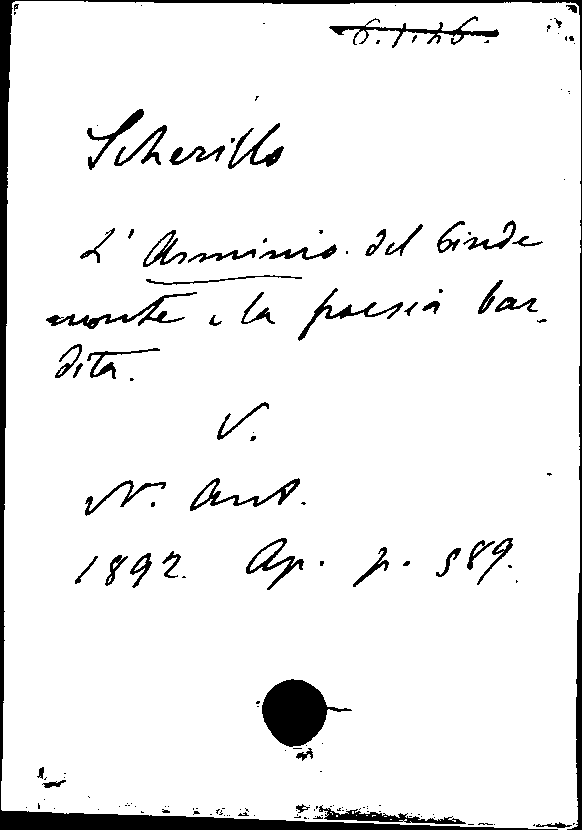 6.1.46.
Scherillo
L'Arminio del Pinde
monte e la poesia bar-
dita.
V.
N. Ant.
1892. Ap. p. 589.